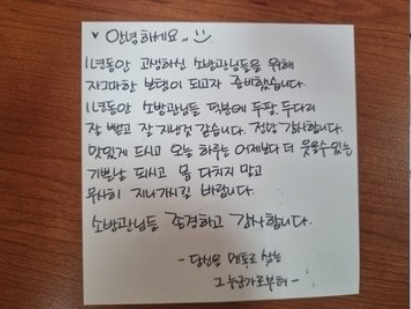 ♥ 안녕하세요~ :)
1년동안 고생하신 소방관님들을 위해
자그마한 보탬이 되고자 준비했습니다.
1년동안 소방관님들 덕분에 두팔, 두다리
잘 뻗고 잘 지낸것 같습니다. 정말 감사합니다.
맛있게 드시고 오늘 하루는 어제보다 더 웃을수있는
기쁜날 되시고 몸 다치지 말고
무사히 지나가시길 바랍니다.
소방관님들 존경하고 감사합니다.
- 당신을 멘토로 삼는
그 누군가로부터 -